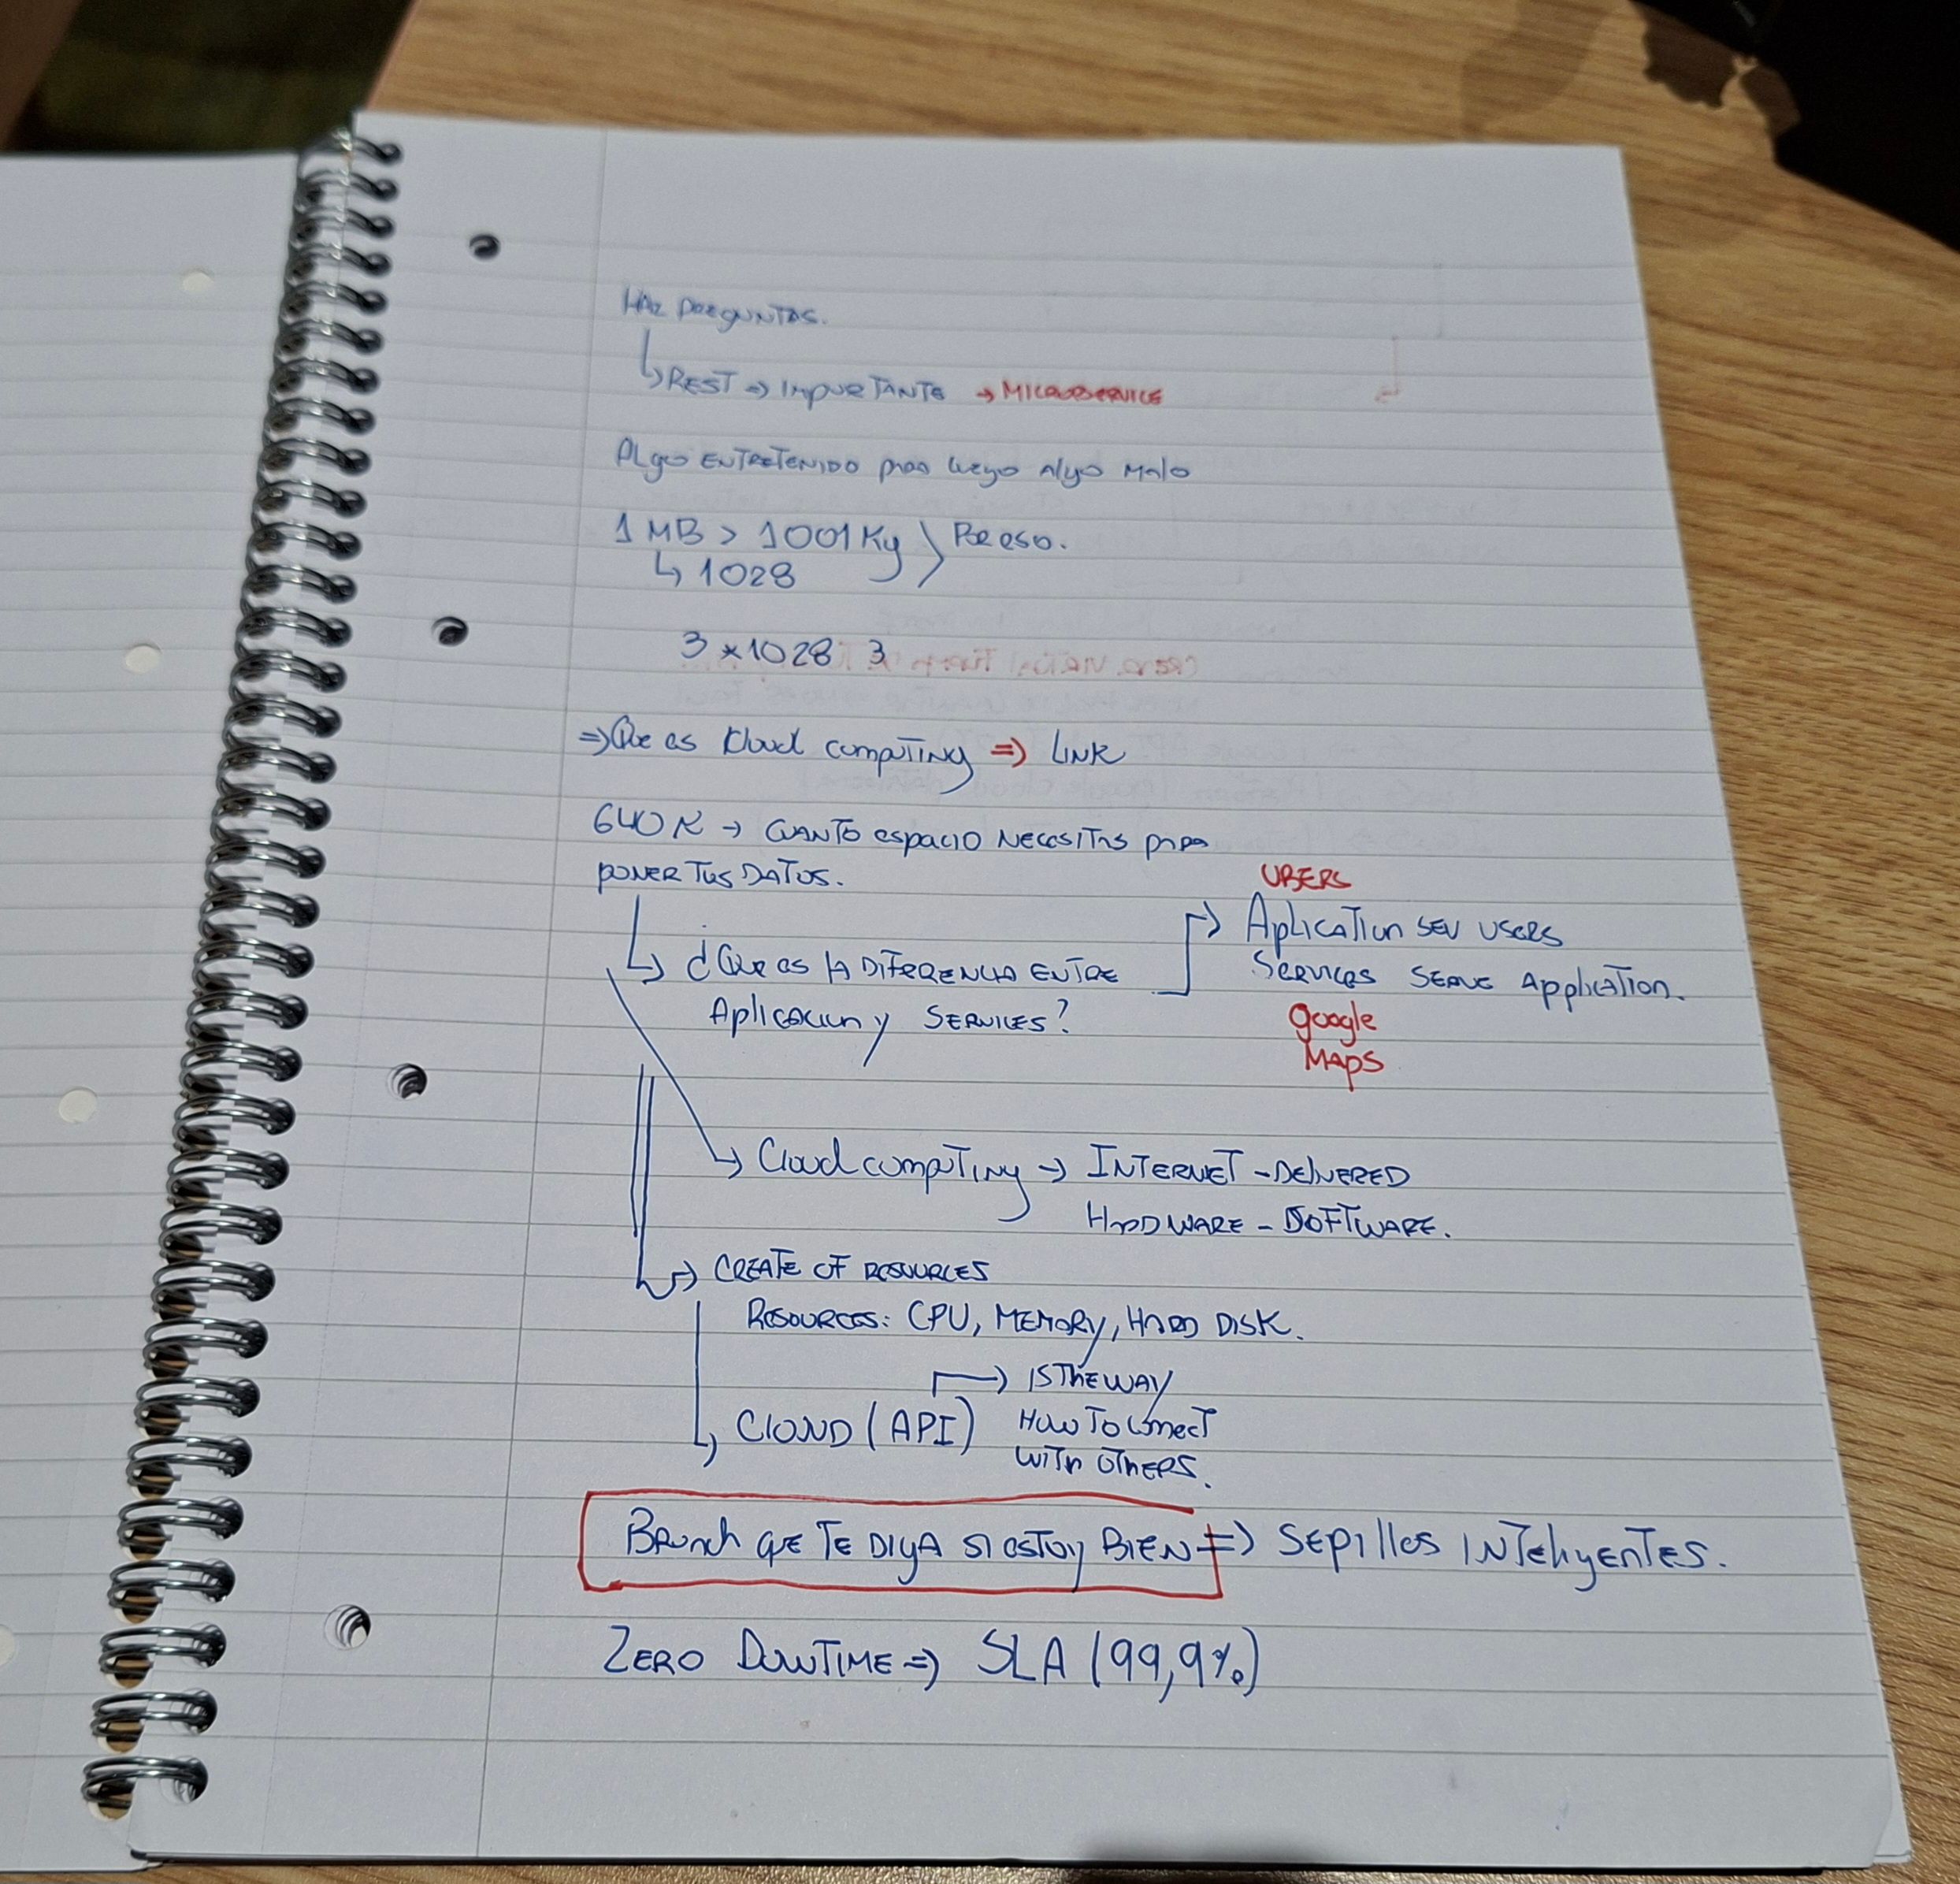 Haz preguntas.
↳ REST => IMPORTANTE → MICROSERVICE
Algo ENTRETENIDO para luego Algo malo
1 MB > 1001 Kg } Por eso.
↳ 1028
3 * 1028 3
=> Que es Kloud computing => LINK
640 K → CUANTO espacio NECESITAS para
PONER TUS DATOS.
UBERS
↳ ¿Que es la DIFERENCIA ENTRE
Aplicacion y SERVICES?
→ Aplication SEV USERS
SERVICES SERVE Application.
google
MAPS
↳ Cloud computing → INTERNET - DELIVERED
HARDWARE - SOFTWARE.
→ CREATE OF RESOURCES
RESOURCES: CPU, MEMORY, HARD DISK.
→ IS THE WAY
↳ CLOUD (API) HOW TO CONNECT
WITH OTHERS.
Brunch QUE TE DIGA SI ESTOY BIEN => SEPILLOS INTELIGENTES.
ZERO DOWTIME => SLA (99,9%)